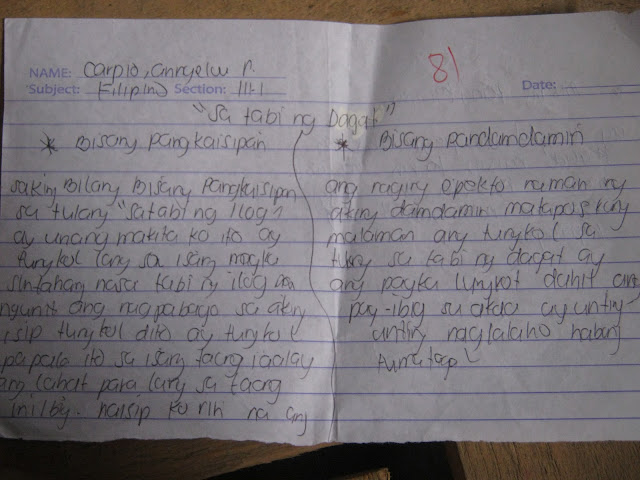 NAME: Carpio, Annyelu P.
81
Subject: Filipino Section: III-1
Date:
"Sa tabi ng Dagat"
* Bisang pangkaisipan
saking Bilang Bisang Pangkaisipan
sa tulang "sa tabi ng ilog"
ay unang makita ko ito ay
tungkol lang sa isang magka
sintahang nasa tabi ng ilog
ngunit ang nagpabago sa aking
isip tungkol dito ay tungkol
papala ito sa isang taong iaalay
ang lahat para lang sa taong
iniibig. naisip ko rin na ang
* Bisang pandamdamin
ang naging epekto naman ng
aking damdamin matapos kong
malaman ang tungkol sa
tulang sa tabi ng dagat ay
ang pagka lungkot dahil ang
pag-ibig sa akda ay unting
unting naglalaho habang
tumatagal